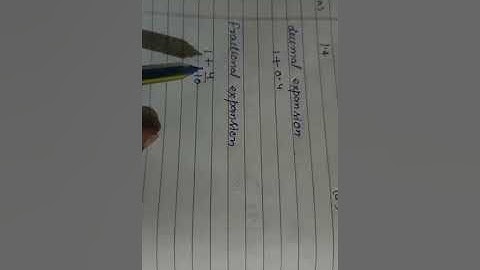 a) 1.4
decimal expansion
1 + 0.4
fractional expansion
1 + 4/10